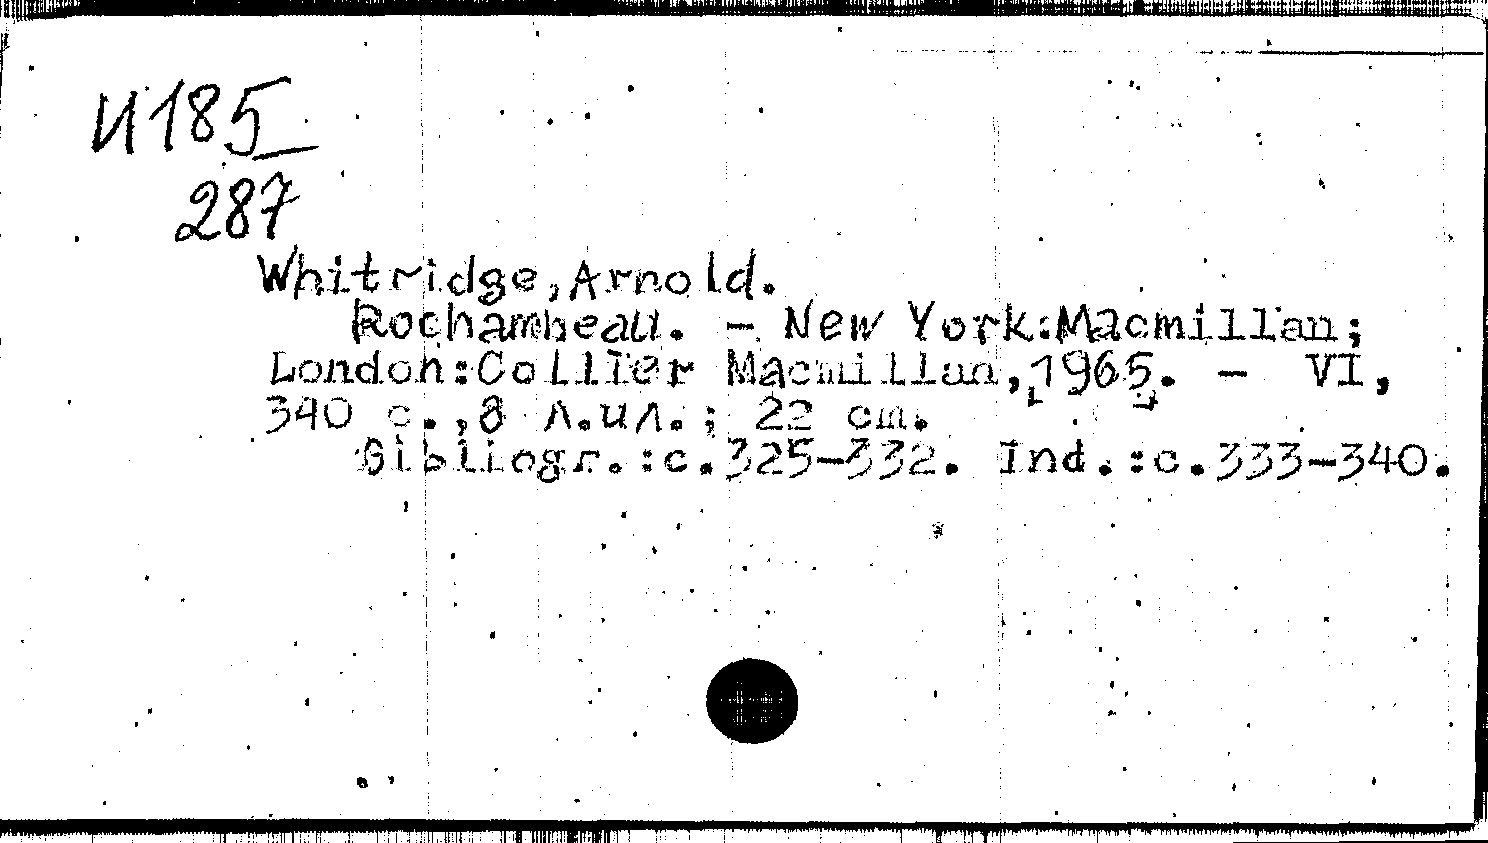 И185
287
Whitridge, Arnold.
Rochambeau. - New York:Macmillan;
London:Collier Macmillan,[1965]. - VI,
340 с.,8 л.ил.; 22 cm.
Bibliogr.:c.325-332. Ind.:c.333-340.